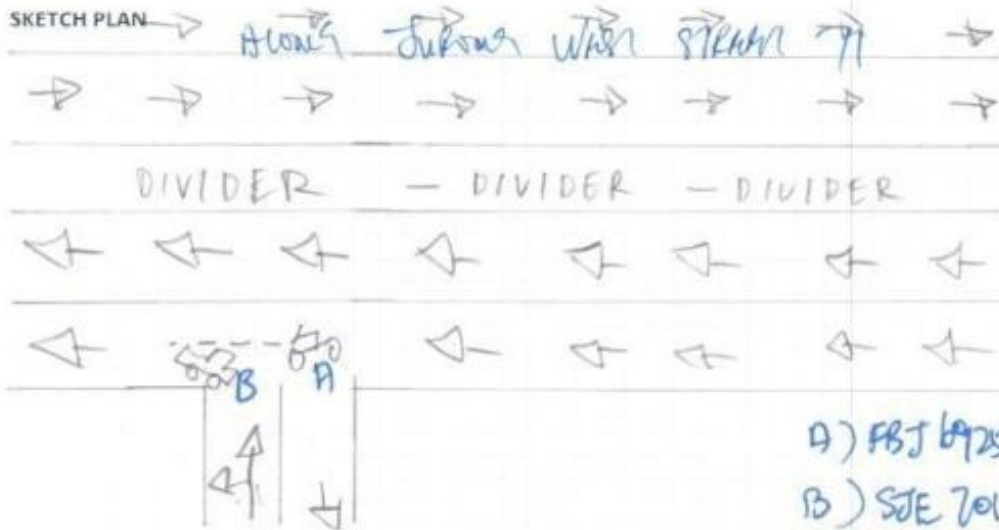 SKETCH PLAN
ALONG JURONG WEST STREET 71
DIVIDER - DIVIDER - DIVIDER
B A
A) FBJ 6925
B) SJE 701